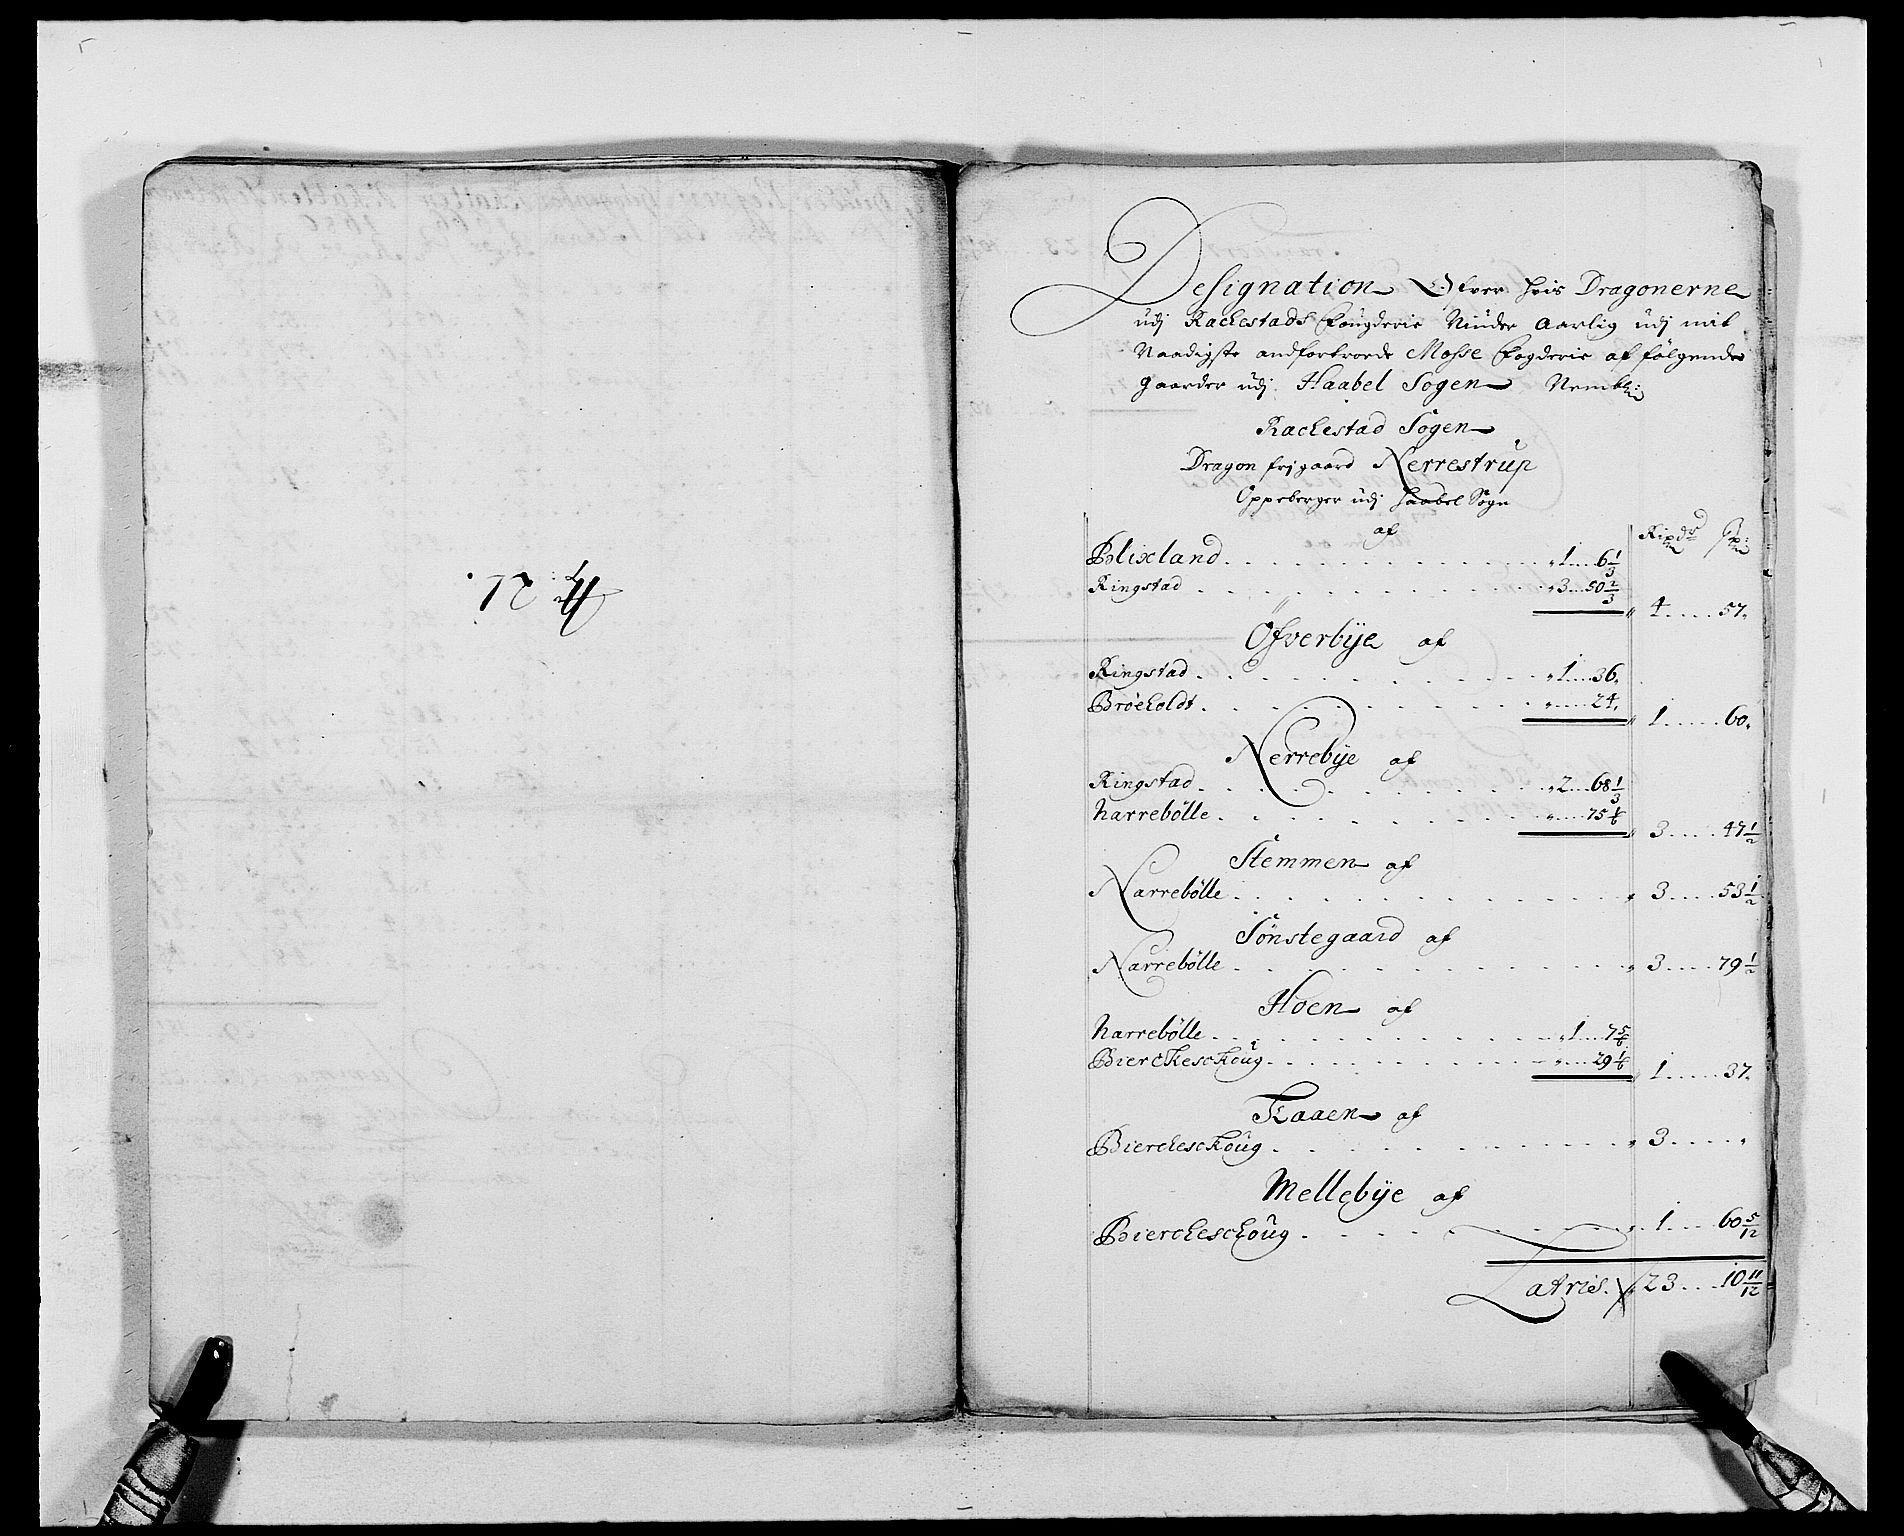 № 21.
Designation Ofver hvis Dragonerne
udj Rachestads Fougderie Niuder Aarlig udj mit
Naadigste andfortroede Mosse Fogderie af følgende
gaarder udj Haabel Sogen Nembl:
Rachestad Sogen
Dragon frj gaard Nerrestrup
Oppeberger udj Haabel Sogn
af Rixdr
Blixland 1 6 1/3
Ringstad 3 50 2/3 4 57
Ofverbÿe af
Ringstad 1 36
Brøeholdt 24 1 60
Nerrebÿe af
Ringstad 2 68 1/3
Narrebølle 75 1/6 3 47 1/2
Stemmen af
Narrebølle 3 53 1/2
Sønstegaard af
Narrebølle 3 79 1/2
Hoen af
Narrebølle 1 7 5/6
Bierckeschoug 29 1/6 1 37
Kaaen af
Biercheschoug 3
Mellebÿe af
Biercheschoug 1 60 5/12
Latris. 23 10 11/12